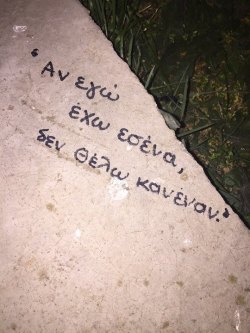 'Αν εγώ
έχω εσένα,
δεν θέλω κανέναν.'